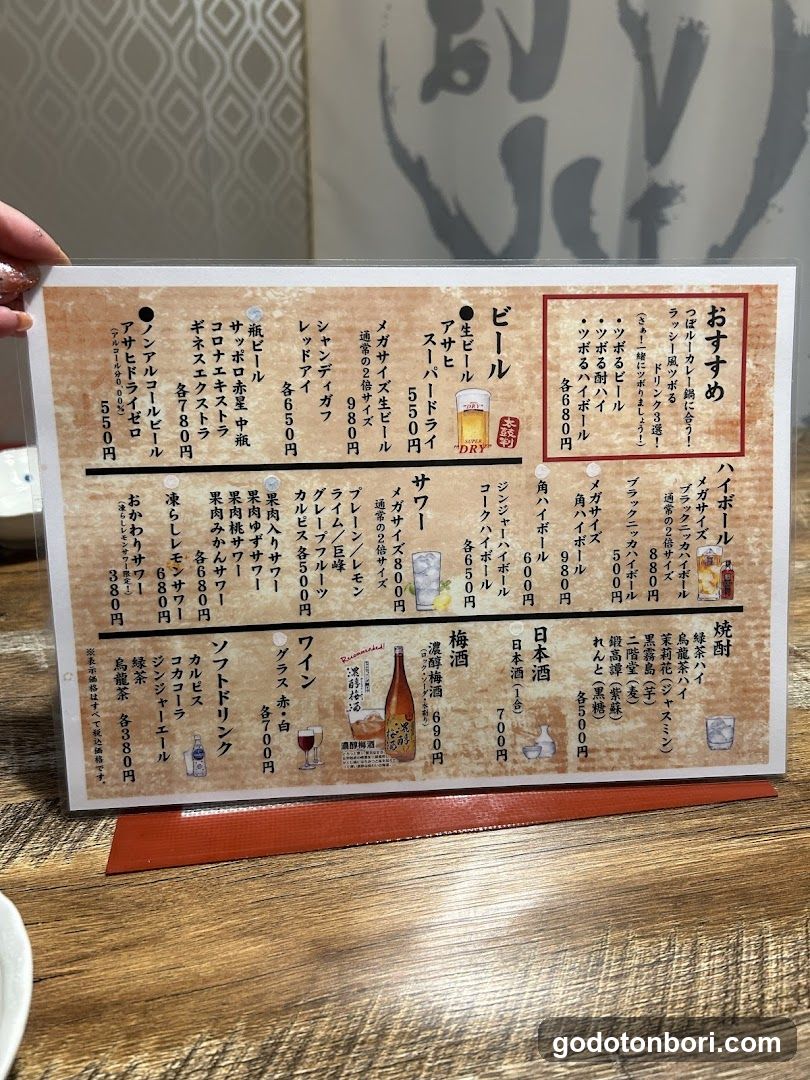 おすすめ
つぼルーカレー鍋に合う!
ラッシー風ツボる
ドリンク3選!
(さぁ!一緒にツボりましょう!)
・ツボるビール
・ツボる酎ハイ
・ツボるハイボール
各680円
ビール
●生ビール
アサヒ
スーパードライ
550円
メガサイズ生ビール
通常の2倍サイズ
980円
シャンディガフ
レッドアイ
各650円
瓶ビール
サッポロ赤星 中瓶
コロナエキストラ
ギネスエクストラ
各780円
●ノンアルコールビール
アサヒドライゼロ
(アルコール分0.00%)
550円
"DRY"
SUPER
"DRY"
太鼓判
ハイボール
メガサイズ
ブラックニッカハイボール
通常の2倍サイズ
880円
ブラックニッカハイボール
500円
メガサイズ
角ハイボール
980円
角ハイボール
600円
ジンジャーハイボール
コークハイボール
各650円
サワー
メガサイズ800円
通常の2倍サイズ
プレーン/レモン
ライム/巨峰
グレープフルーツ
カルピス 各500円
果肉入りサワー
果肉ゆずサワー
果肉桃サワー
果肉みかんサワー
各680円
凍らしレモンサワー
680円
おかわりサワー
(凍らしレモンサワー限定!)
380円
焼酎
緑茶ハイ
烏龍茶ハイ
茉莉花(ジャスミン)
黒霧島(芋)
二階堂(麦)
鍛高譚(紫蘇)
れんと(黒糖)
各500円
日本酒
日本酒(1合)
700円
梅酒
濃醇梅酒
(ロック・ソーダ・水割り)
690円
Recommended!
濃醇梅酒
濃醇梅酒
濃醇梅酒
ワイン
グラス 赤・白
各700円
ソフトドリンク
カルピス
コカコーラ
ジンジャーエール
緑茶
烏龍茶 各380円
※表示価格はすべて税込価格です。
godotonbori.com